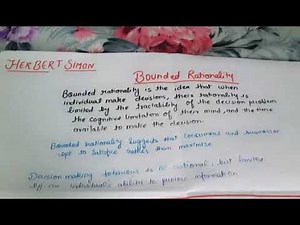 HERBERT SIMON
Bounded Rationality
Bounded rationality is the idea that when
individual make decisions, their rationality is
limited by the tractability of the decision problem
the cognitive limitation of their mind, and the time
available to make the decision.
Bounded rationality suggests that consumers and
opt to satisfice rather than maximise
Decision making behaviour is rational, but limited
by an individual's ability to process information